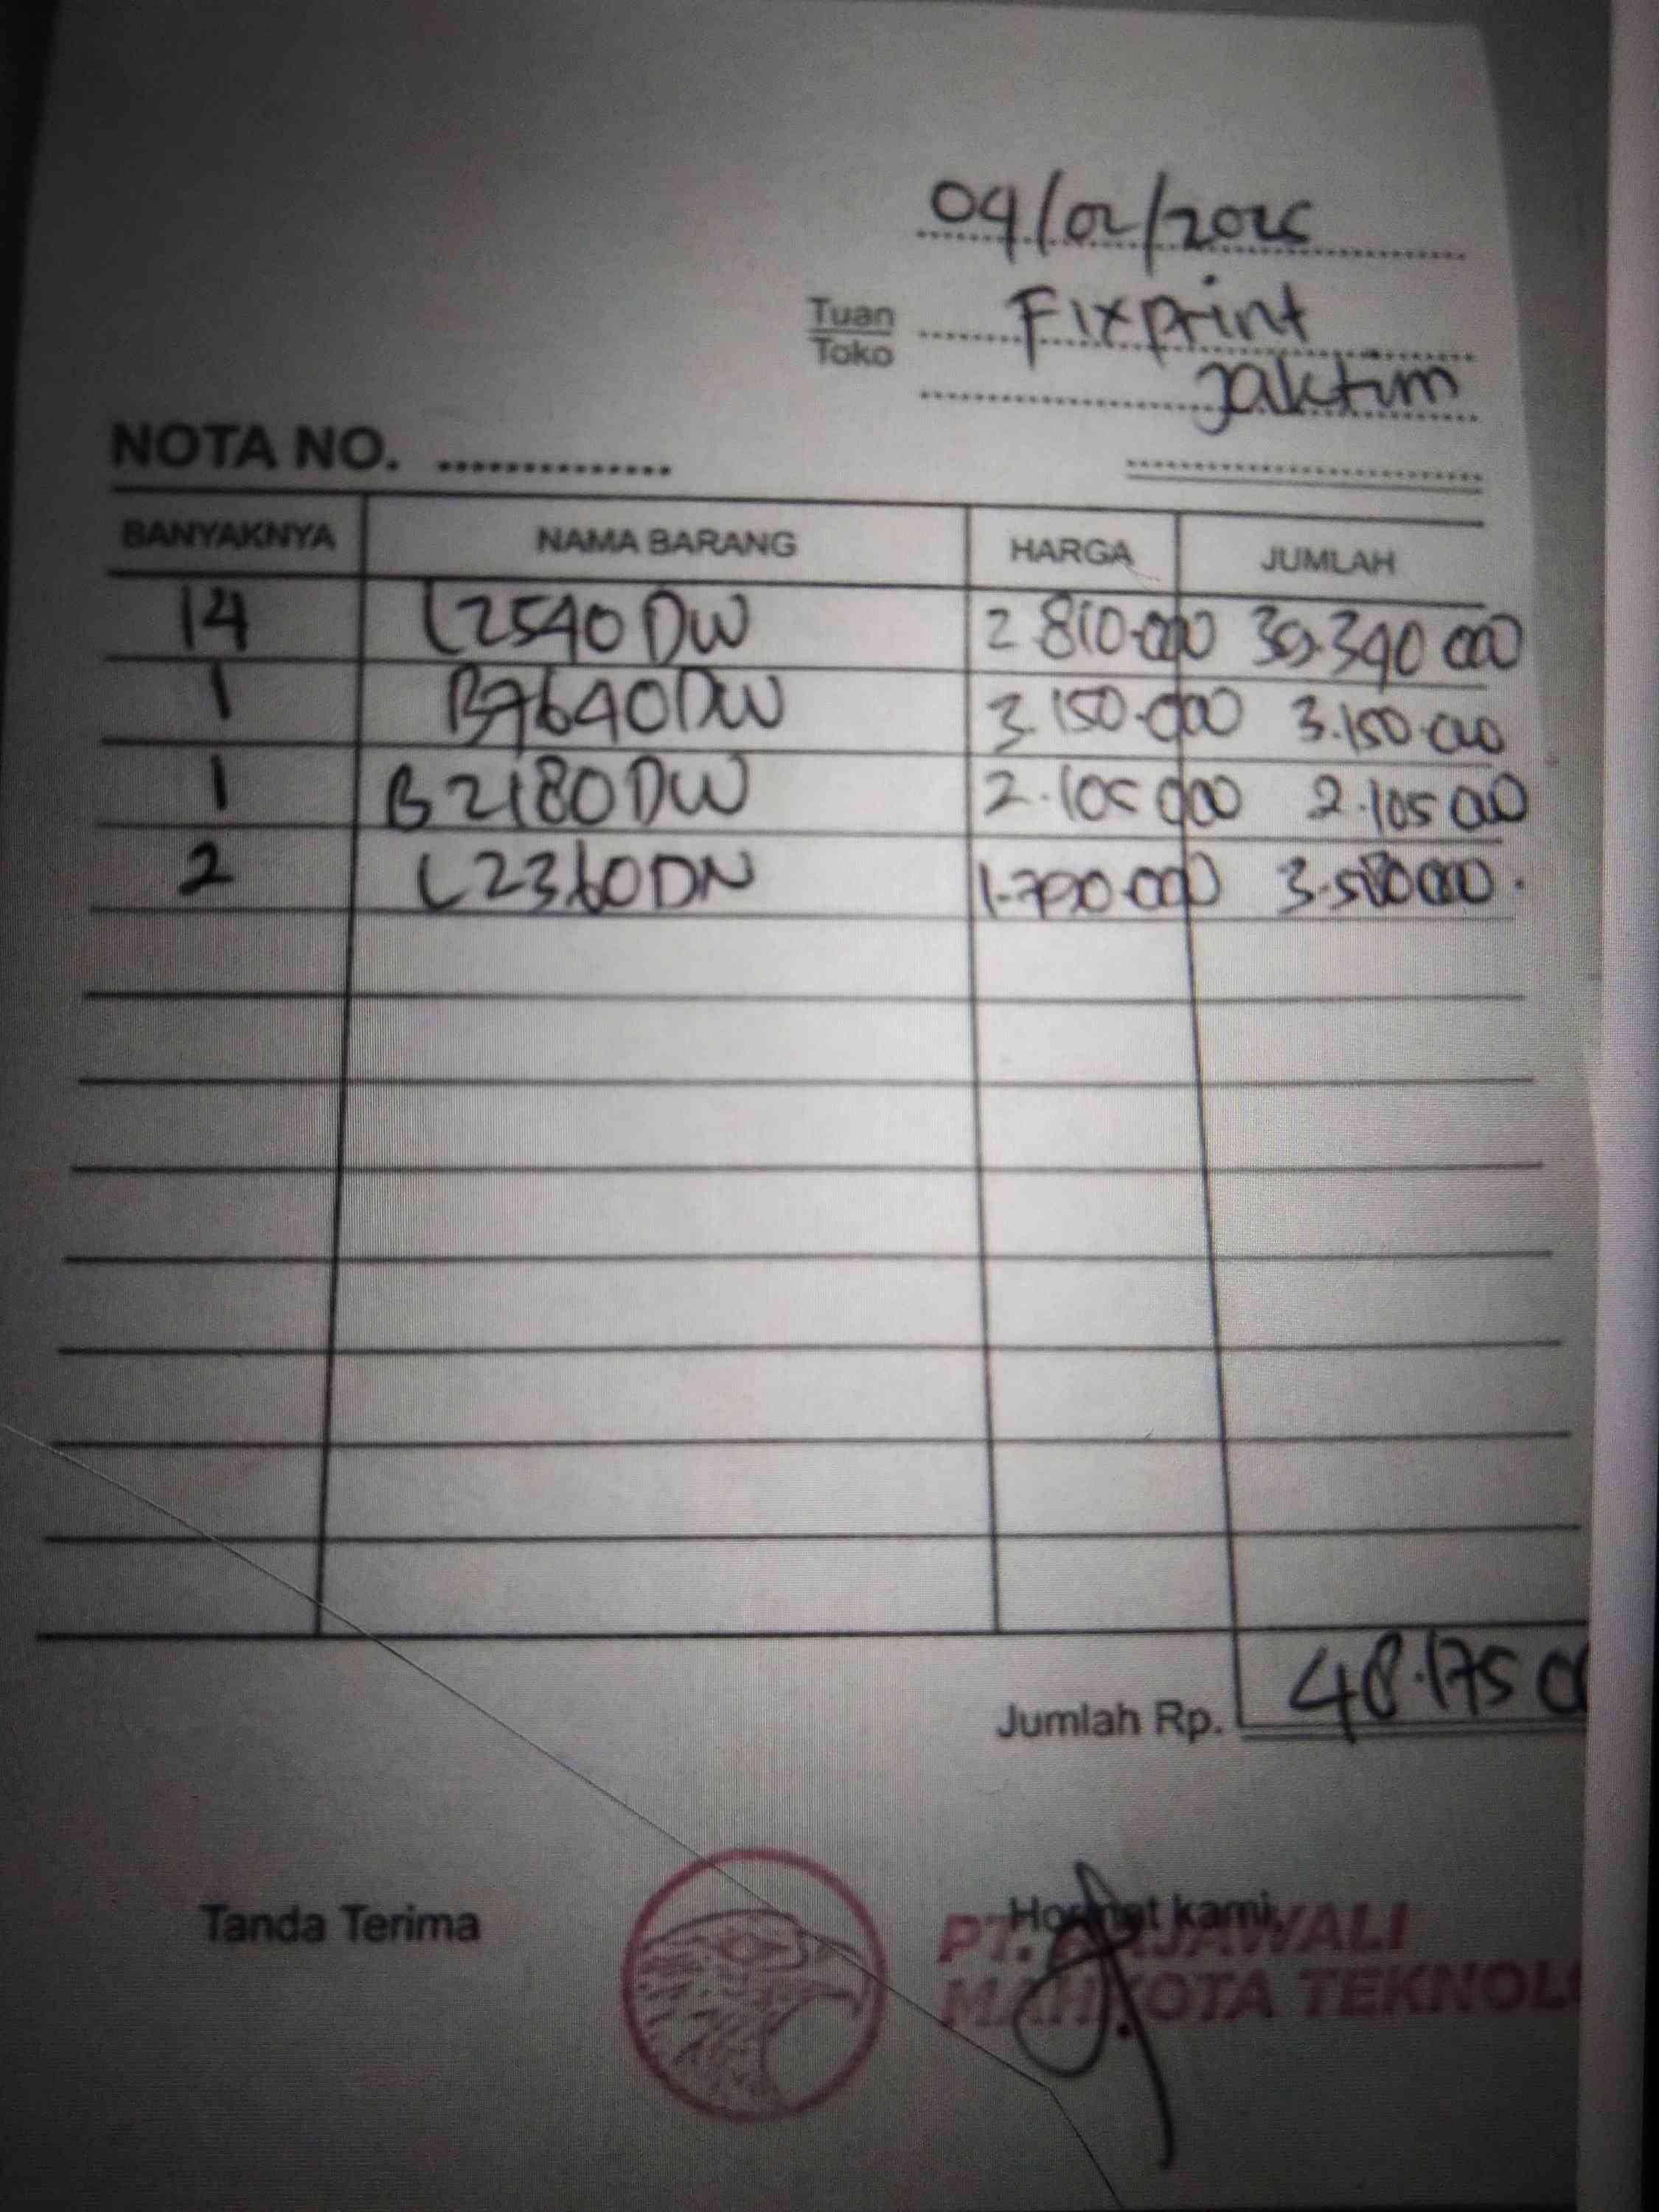 04/02/2026
Tuan
Toko
Fixprint
Jaktim
NOTA NO.
BANYAKNYA NAMA BARANG HARGA JUMLAH
14 L2540DW 2.810.000 39.340.000
1 B7640DW 3.150.000 3.150.000
1 B2180DW 2.105.000 2.105.000
2 L2360DN 1.790.000 3.580.000
Jumlah Rp. 48.175.0
Tanda Terima Hormat kami,
PT. RAJAWALI
MAHKOTA TEKNOLO